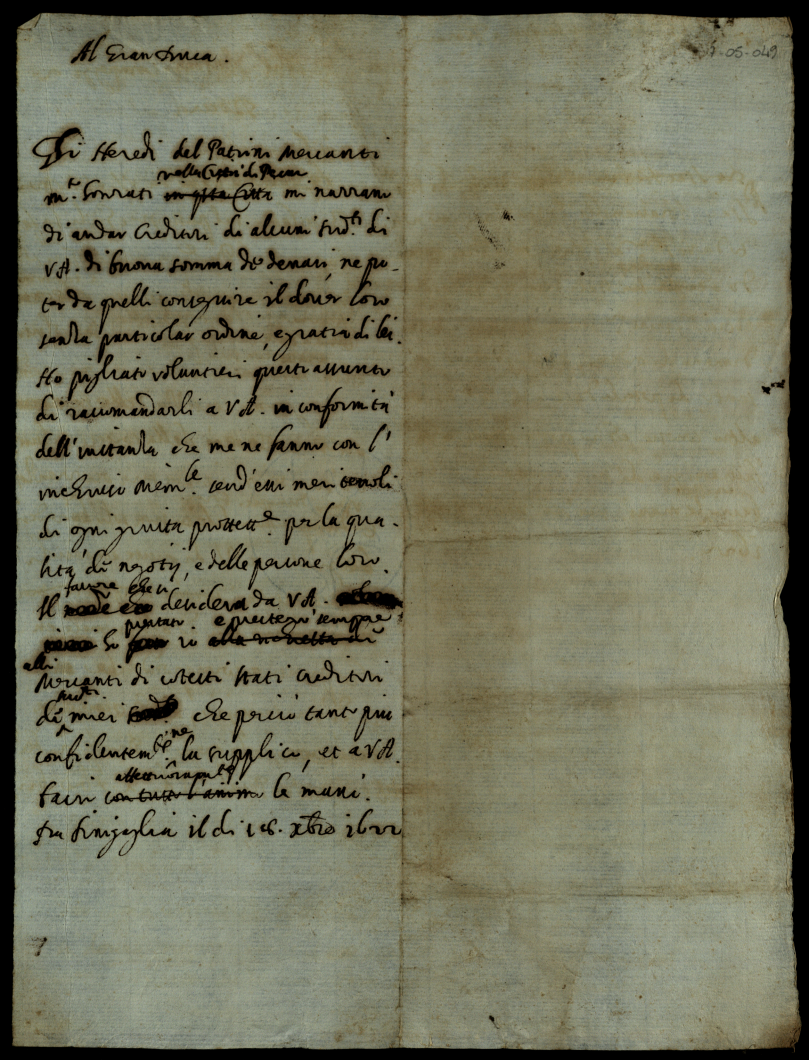 5-05-049
Al Gran Duca.
Gli Heredi del Patrini Mercanti
nella Città di Pesaro
m.ᵗᵒ honrati in qsta Città mi narrano
di andar Creditori di alcuni sud.ᵗⁱ di
VA. di buona somma de denari, ne po-
ter da quelli conseguire il dover loro
senza particolar ordine, e gratia di lei.
Ho pigliato voluntieri questo assunto
di raccomandarli a VA. in conformità
dell'instanza che me ne fanno con l'
send'essi meritevoli
di ogni giusta protett.ᵉ per la qua-
lità di negotij, e delle persone loro.
favore che si
Il desidera da VA.
prestato e presterò sempre
ho io
alli
Mercanti di cotesti stati creditori
sud.ᵗⁱ
di miei che perciò tanto più
ne
confidentem.ᵗᵉ la supplico, et a VA.
bacio con tutto l'animo le mani.
Da Sinigaglia il di 18. Xbre 1622